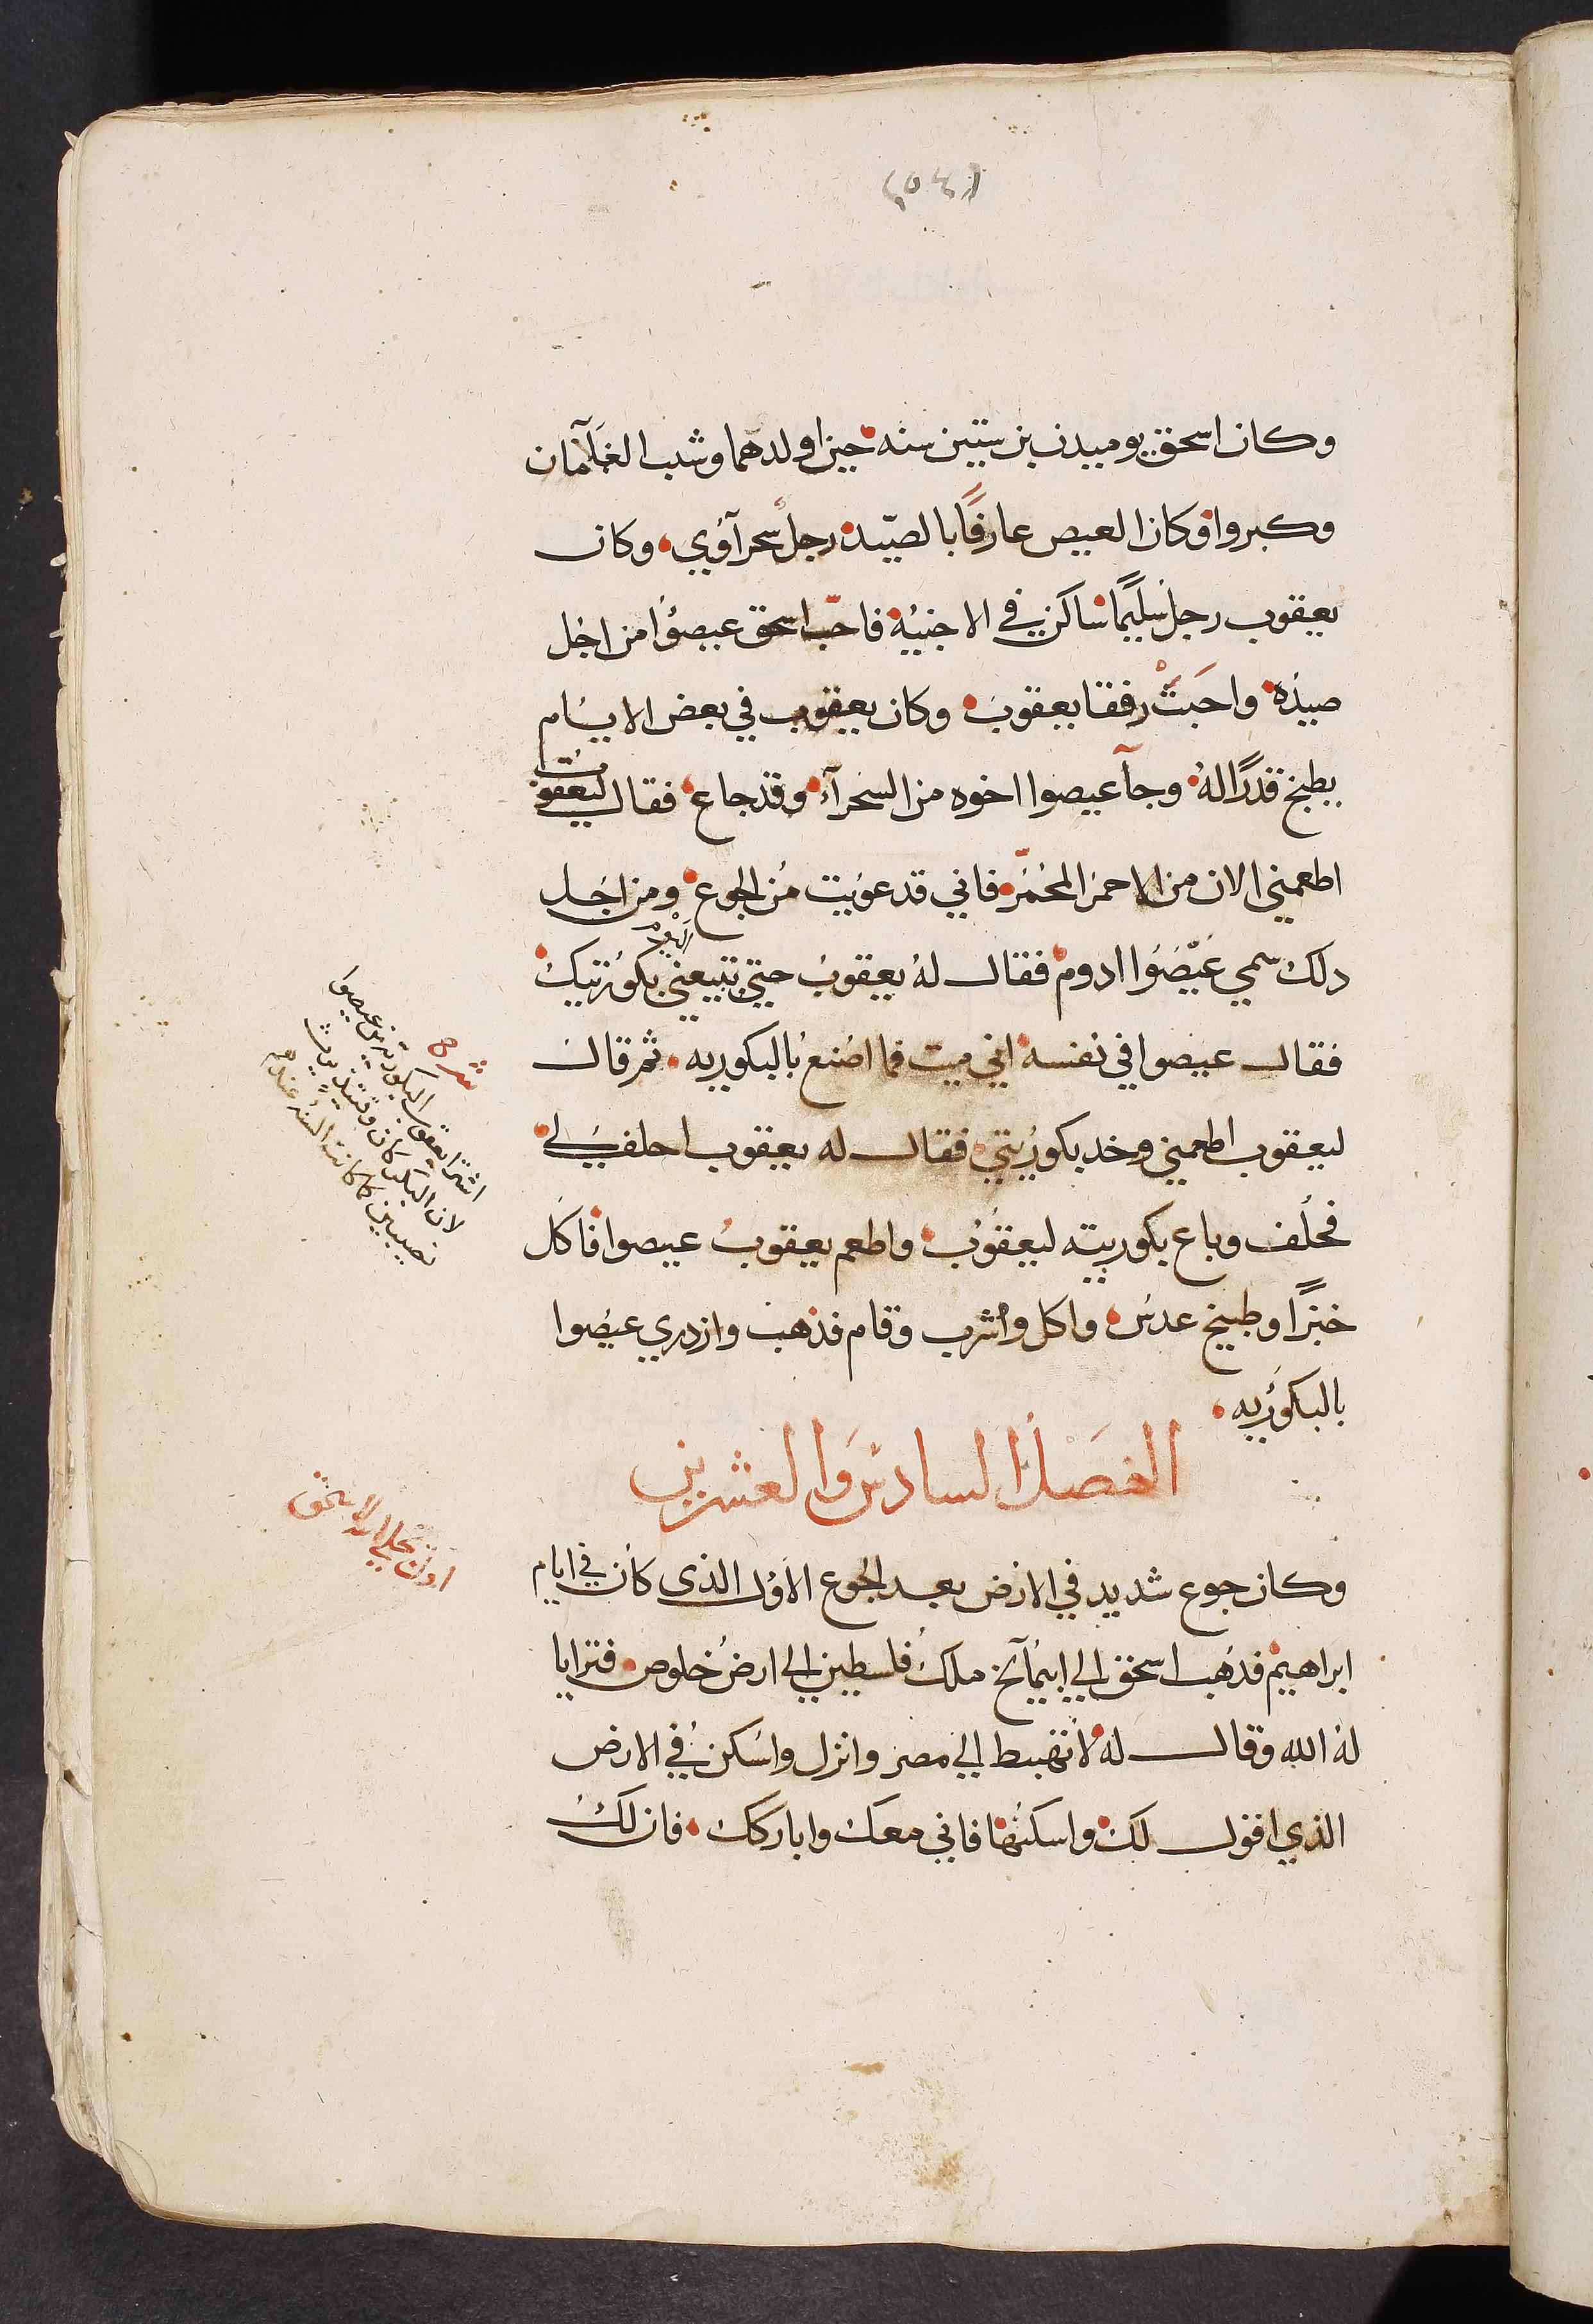 (٥٤)
وكان اسحق يوميدن بن ستين سنه حين اولدهما وشب الغلآمان
وكبروا وكان العيص عارفًا بالصيّد رجل سحرآوُي وكان
يعقوب رجل سليمًا ساكن في الاخبيه فاحبّ اسحق عيصوُا من اجل
صيده واحَبتْ رفقا يعقوبَ وكان يعقوب في بعض الايام
يطبخ قدرًا لهُ وجآ عيصوا اخوه من السحرآء وقد جاع فقال ليعقوب
اطعمني الان من الاحمر المحمّر فاني قد عوبت مُن الجوع ومن اجل
دلك سمي عَيّصَوُا ادوم فقال لهُ يعقوبُ حتي تبيعني بكورتيك
اليوم
فقال عيصوا في نفسه اني ميت فما اصنع بالبكوريه ثم قال
ليعقوب اطعمني وخد بكوريتي فقال له يعقوب احلف لي
فحلف وباع بكوريته ليعقوب واطعم يعقوب عيصوا فاكل
خبزًا وطبيخ عدس واكل وشرب وقام فذهب وازدري عيصوا
بالبكوريه
شرح
اشترا يعقوب البكوريه من عيصوا
لان البكر كان وقتيذ يرث
نصيبين كما كانت السنه عندهم
الفصَلُ السادسَ والعشرين
اول تجلي الله لاسحق
وكان جوع شديد في الارض بعد الجوع الاول الذى كان في ايام
ابراهيم فدهب اسحق الي ابيمآلخ ملك فلسطين الي ارض خلوص فترايا
لهُ الله وقال له لا تهبط الي مصر وانزل واسكن في الارض
الذي اقول لك واسكنها فاني معك واباركك فان لك